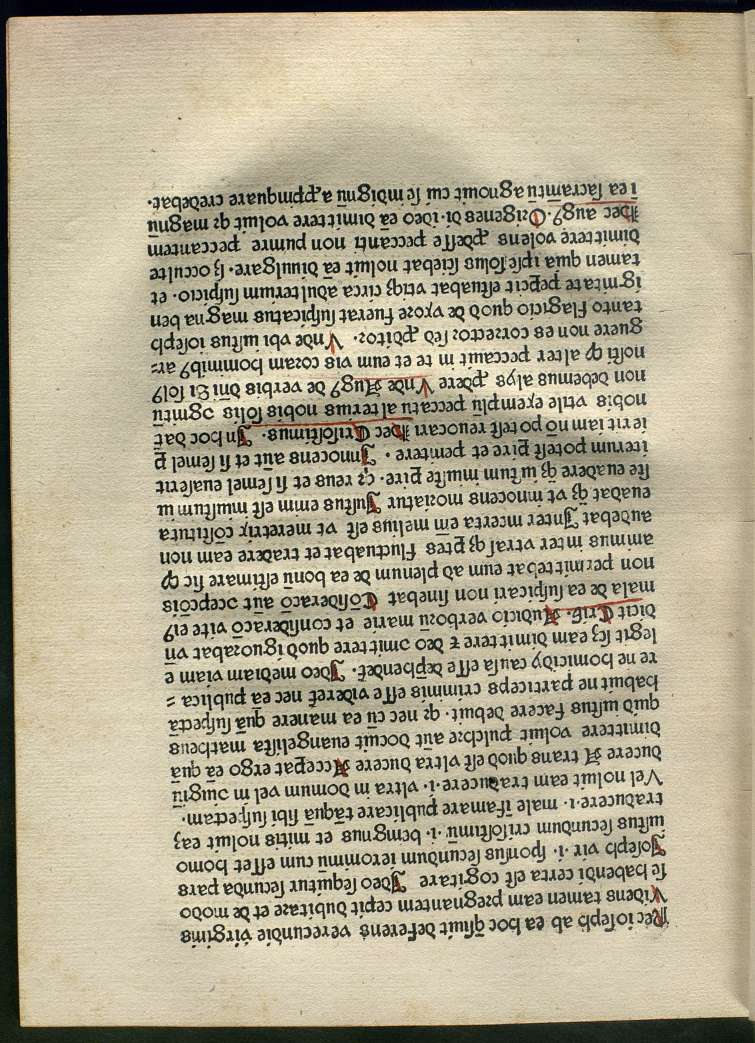 Nec ioseph ab ea hoc q̄siuit deferens verecundie virginis
Videns tamen eam pregnantem cepit dubitare et de modo
se habendi certa est cogitare Ideo sequitur secunda pars
Joseph vir .i. sponsus secundum ieronimū cum esset homo
iustus secundum crisostimū .i. benignus et mitis noluit eaꝫ
traducere .i. male ifamare publicare tāquā sibi suspectam.
Vel noluit eam traducere .i. vltra in domum vel in ɔiugiū
ducere A trans quod est vltra ducere Accepat ergo eā quā
dimittere voluit pulchre aūt docuit euangelista matheus
quid iustus facere debuit. qꝫ nec cū ea manere quā suspectā
habuit ne particeps criminis esse videret̄ nec eā publica =
re ne homicidij causa esse dep̄hendet̄. Ideo mediam viam e
legit sꝫ eam dimittere ⁊ deo ɔmittere quod ignorabat vn̄
dicit Cris. Audicio verborū marie et consideracō vite ei9
mala de ea suspicari non sinebat Cōsideracō aūt ɔcepcōis
non permittebat eum ad plenum de ea bonū estimare sic ꝙ
animus inter vtrasqꝫ ptes fluctuabat et tradere eam non
audebat Inter incerta em̄ melius est vt meretrix cōstituta
euadat qꝫ vt innocens moriatur Iustius enim est iniustum iu
ste euadere qꝫ iustum iniuste pire. qꝫ reus et si semel euaserit
iterum potest pire et penitere . Innocens aūt et si semel p
ierit iam nō potest reuocari Hec Crisostimus. In hoc dat̄
nobis vtile exemplū peccatū alterius nobis solis ɔgnitū
non debemus alijs ꝓdere Vnde Aug9 de verbis dn̄i Si sol9
nosti ꝙ alter peccauit in te et eum vis coram hominib9 ar=
guere non es corrector sed ꝓditor. Vnde vbi iustus ioseph
tanto flagicio quod de vxore fuerat suspicatus magna ben
ignitate pepcit estuabat vtiqꝫ circa adulterium suspicio. et
tamen quia ipse solus sciebat noluit eā diuulgare. sꝫ occulte
dimittere volens ꝓdesse peccanti non punire peccantem
Hec aug9. Origenes di. ideo eā dimittere voluit qꝫ magnū
i ea sacramētū agnouit cui se indignū apꝓinquare credebat.